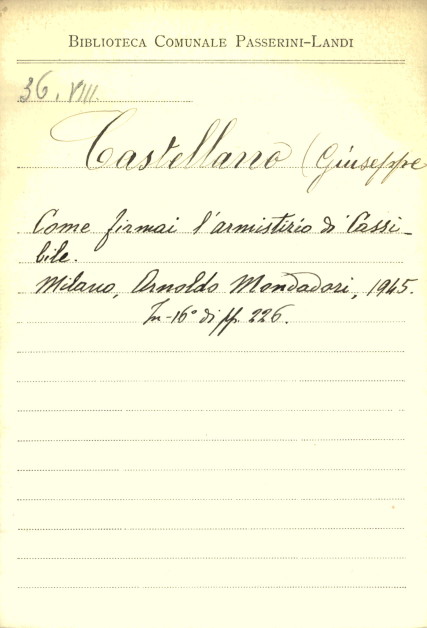 BIBLIOTECA COMUNALE PASSERINI-LANDI
36. VIII.
Castellano (Giuseppe
Come firmai l'armistizio di Cassi-
bile.
Milano, Arnoldo Mondadori, 1945.
In-16° di pp. 226.